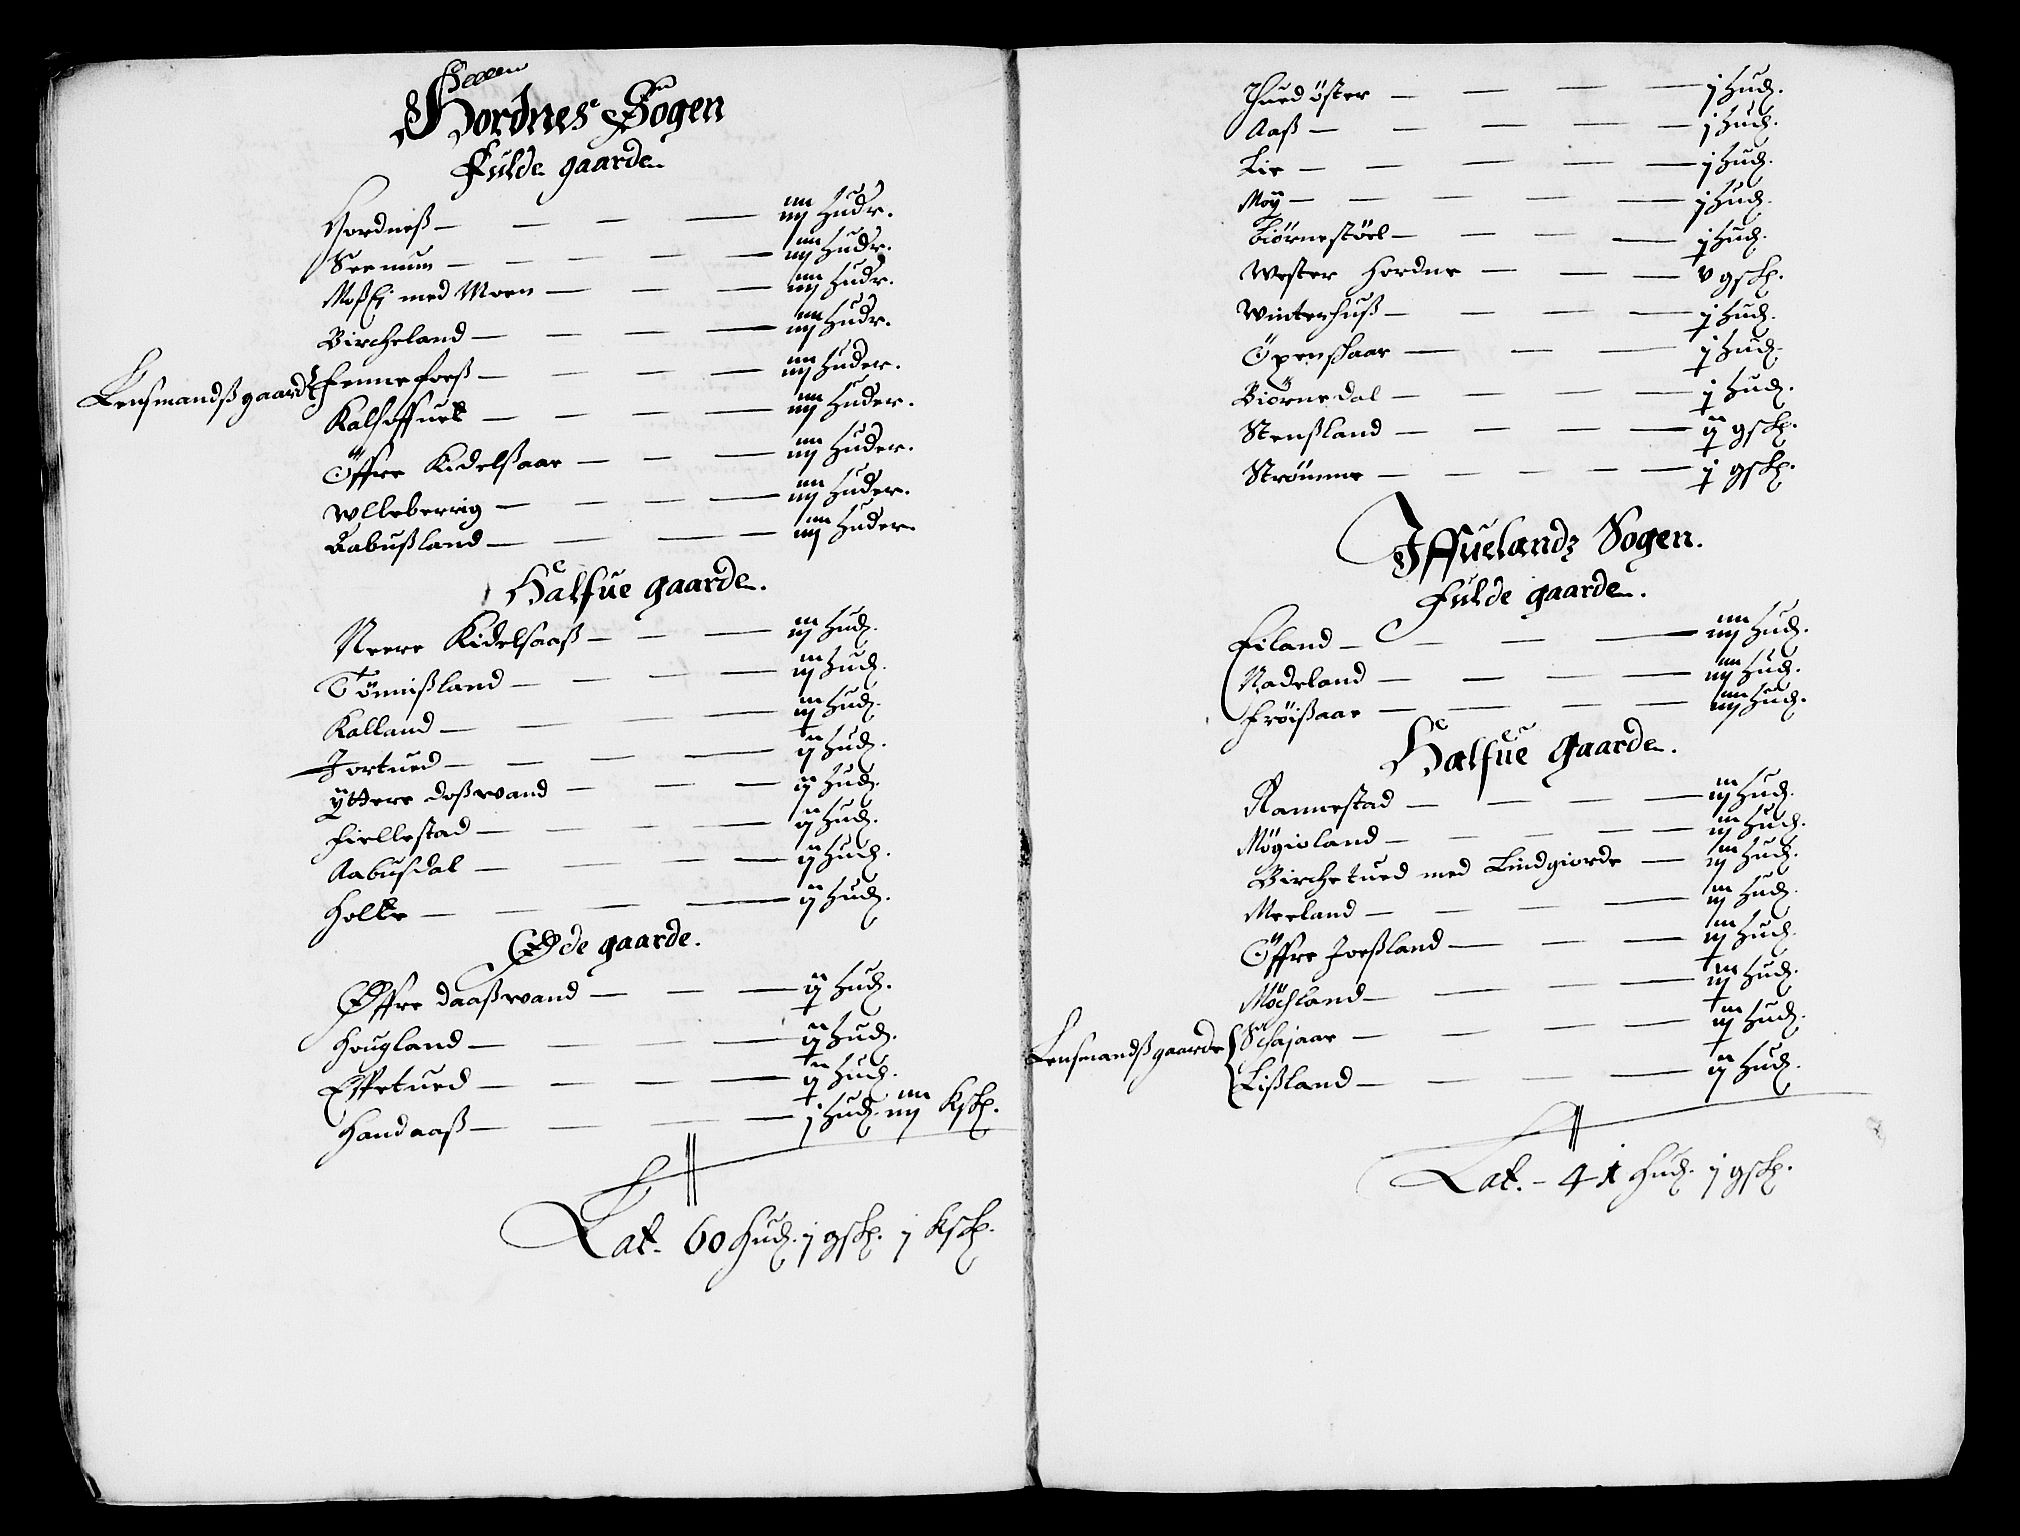 Hordnes Sogen
Fulde gaarde.
Hordness — iiij Hudr.
Seemum — iiij Hudr.
Moßej med Moen — iiij Hudr.
Bircheland — iiij Hudr.
Lensmandsß gaard Fennefoeß — iiij Huder.
Kalhoffuet — iiij Huder.
Öffre Kidelsaar — iiij Huder.
Wlleberrig — iiij Huder.
Aabußland — iiij Huder.
Halfue gaarde.
Neere Kidelsaaß — iij Hud.
Tömißland — iij Hud.
Kalland — iij Hud.
Jortued — ij Hud.
Ÿttere Doßwand — ij Hud.
Fiellestad — ij Hud.
Aabusdal — ij Hud.
Holte — ij Hud.
Øde gaarde.
Øffre Daaßwand — ij Hud.
Hougland — ij Hud.
Eppetued — ij Hud.
Handaaß — j Hud. iiij Kskp.
Lat. 60 Hud. j gskp. j Kskp.
Tued öster — j Hud.
Aaß — j Hud.
Lie — j Hud.
Moÿ — j Hud.
Biörnestöel — j Hud.
Wester Hordne — v gskp.
Winterhuß — j Hud.
Öpenskaar — j Hud.
Biörnedal — j Hud.
Stensland — ij gskp.
Strömme — j gskp.
Iffuelandz Sogen.
Fulde gaarde.
Eiland — iiij Hud.
Nadeland — iiij Hud.
Fröisaar — iiij Hud.
Halfue gaarde.
Rannestad — iij Hud.
Mögioland — iij Hud.
Birchetued med Lindgiorde — iij Hud.
Meeland — iij Hud.
Öffre Joeßland — iij Hud.
Möchland — iij Hud.
Lensmandß gaarde Schajaar — iij Hud.
Lißland — ij Hud.
Lat. — 41 Hud. j gskp.